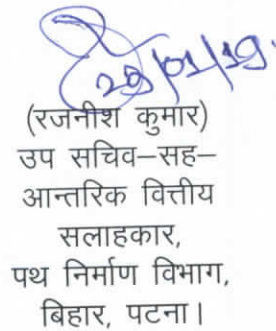 29/01/19.
(रजनीश कुमार)
उप सचिव–सह–
आन्तरिक वित्तीय
सलाहकार,
पथ निर्माण विभाग,
बिहार, पटना।